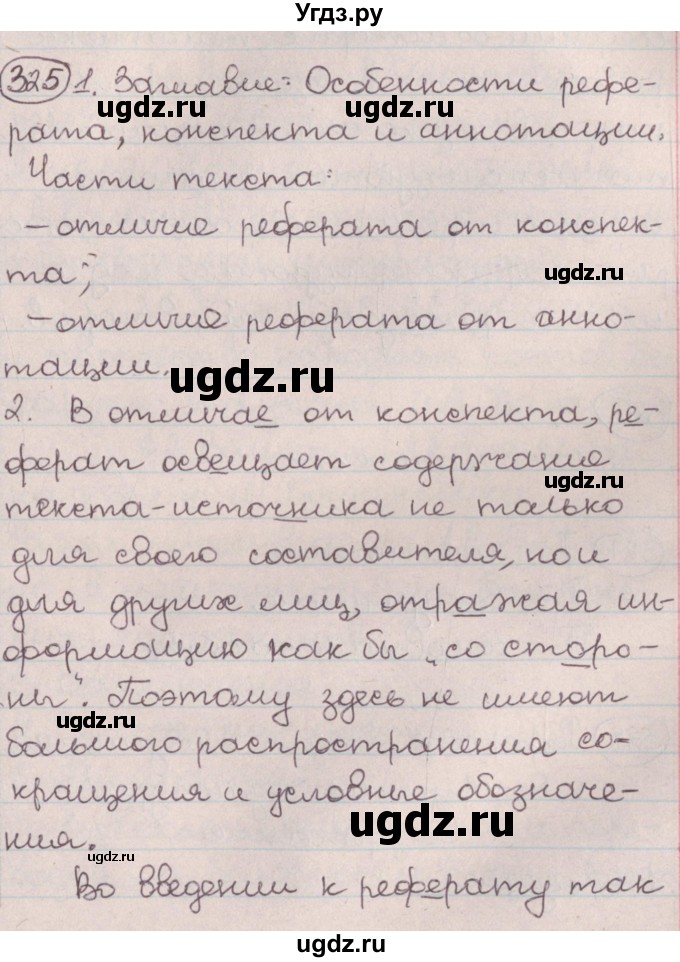 Угдз.ру
325 1. Заглавие: Особенности рефе-
ugdz.ru ugdz.ru
рата, конспекта и аннотации.
Части текста:
– отличие реферата от конспек-
та; ugdz.ru
– отличие реферата от анно-
тации. ugdz.ru
2. В отличае от конспекта, ре-
ферат освещает содержание
ugdz.ru
текста-источника не только
для своего составителя, но и
для других лиц, отражая ин-
формацию как бы „со сторо-
ны". Поэтому здесь не имеют
ugdz.ru
большого распространения со-
кращения и условные обозначе-
ugdz.ru
ния.
ugdz.ru
Во введении к реферату так
ugdz.ru